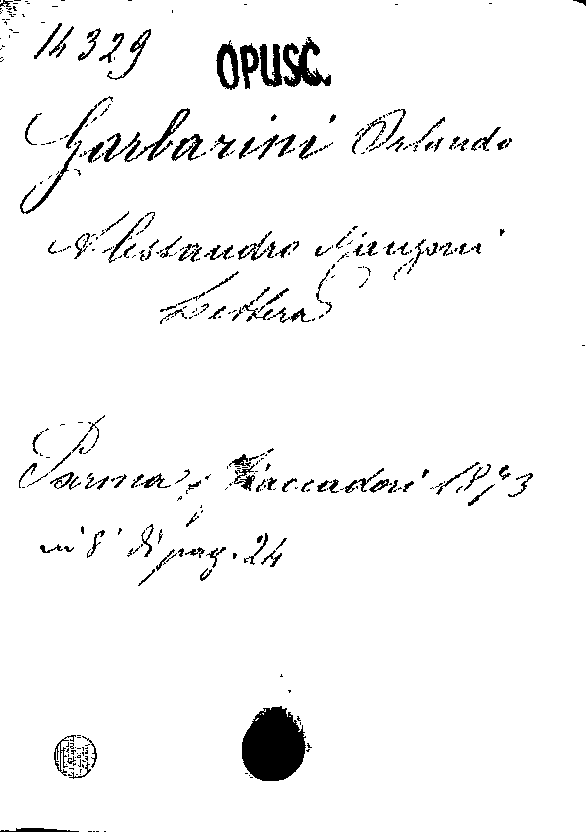 14329
OPUSC.
Garbarini Orlando
Alessandro Manzoni
Lettera
Parma, Fiaccadori 1873
in 8° di pag. 24